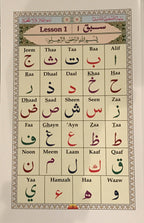 Lesson 1 سبق ١
بسم الله الرحمن الرحيم
Jeem Thaa Taa Baa Alif
ج ث ت ب ا
Raa Dhaal Daal Khaa Haa
ر ذ د خ ح
Dhaad Saad Sheen Seen Zaa
ض ص ش س ز
Faa Ghain Ain Zaa Taa
ف غ ع ظ ط
Noon Meem Laam Kaaf Qaaf
ن م ل ك ق
Yaa Hamzah Haa Waaw
ي ء ه و